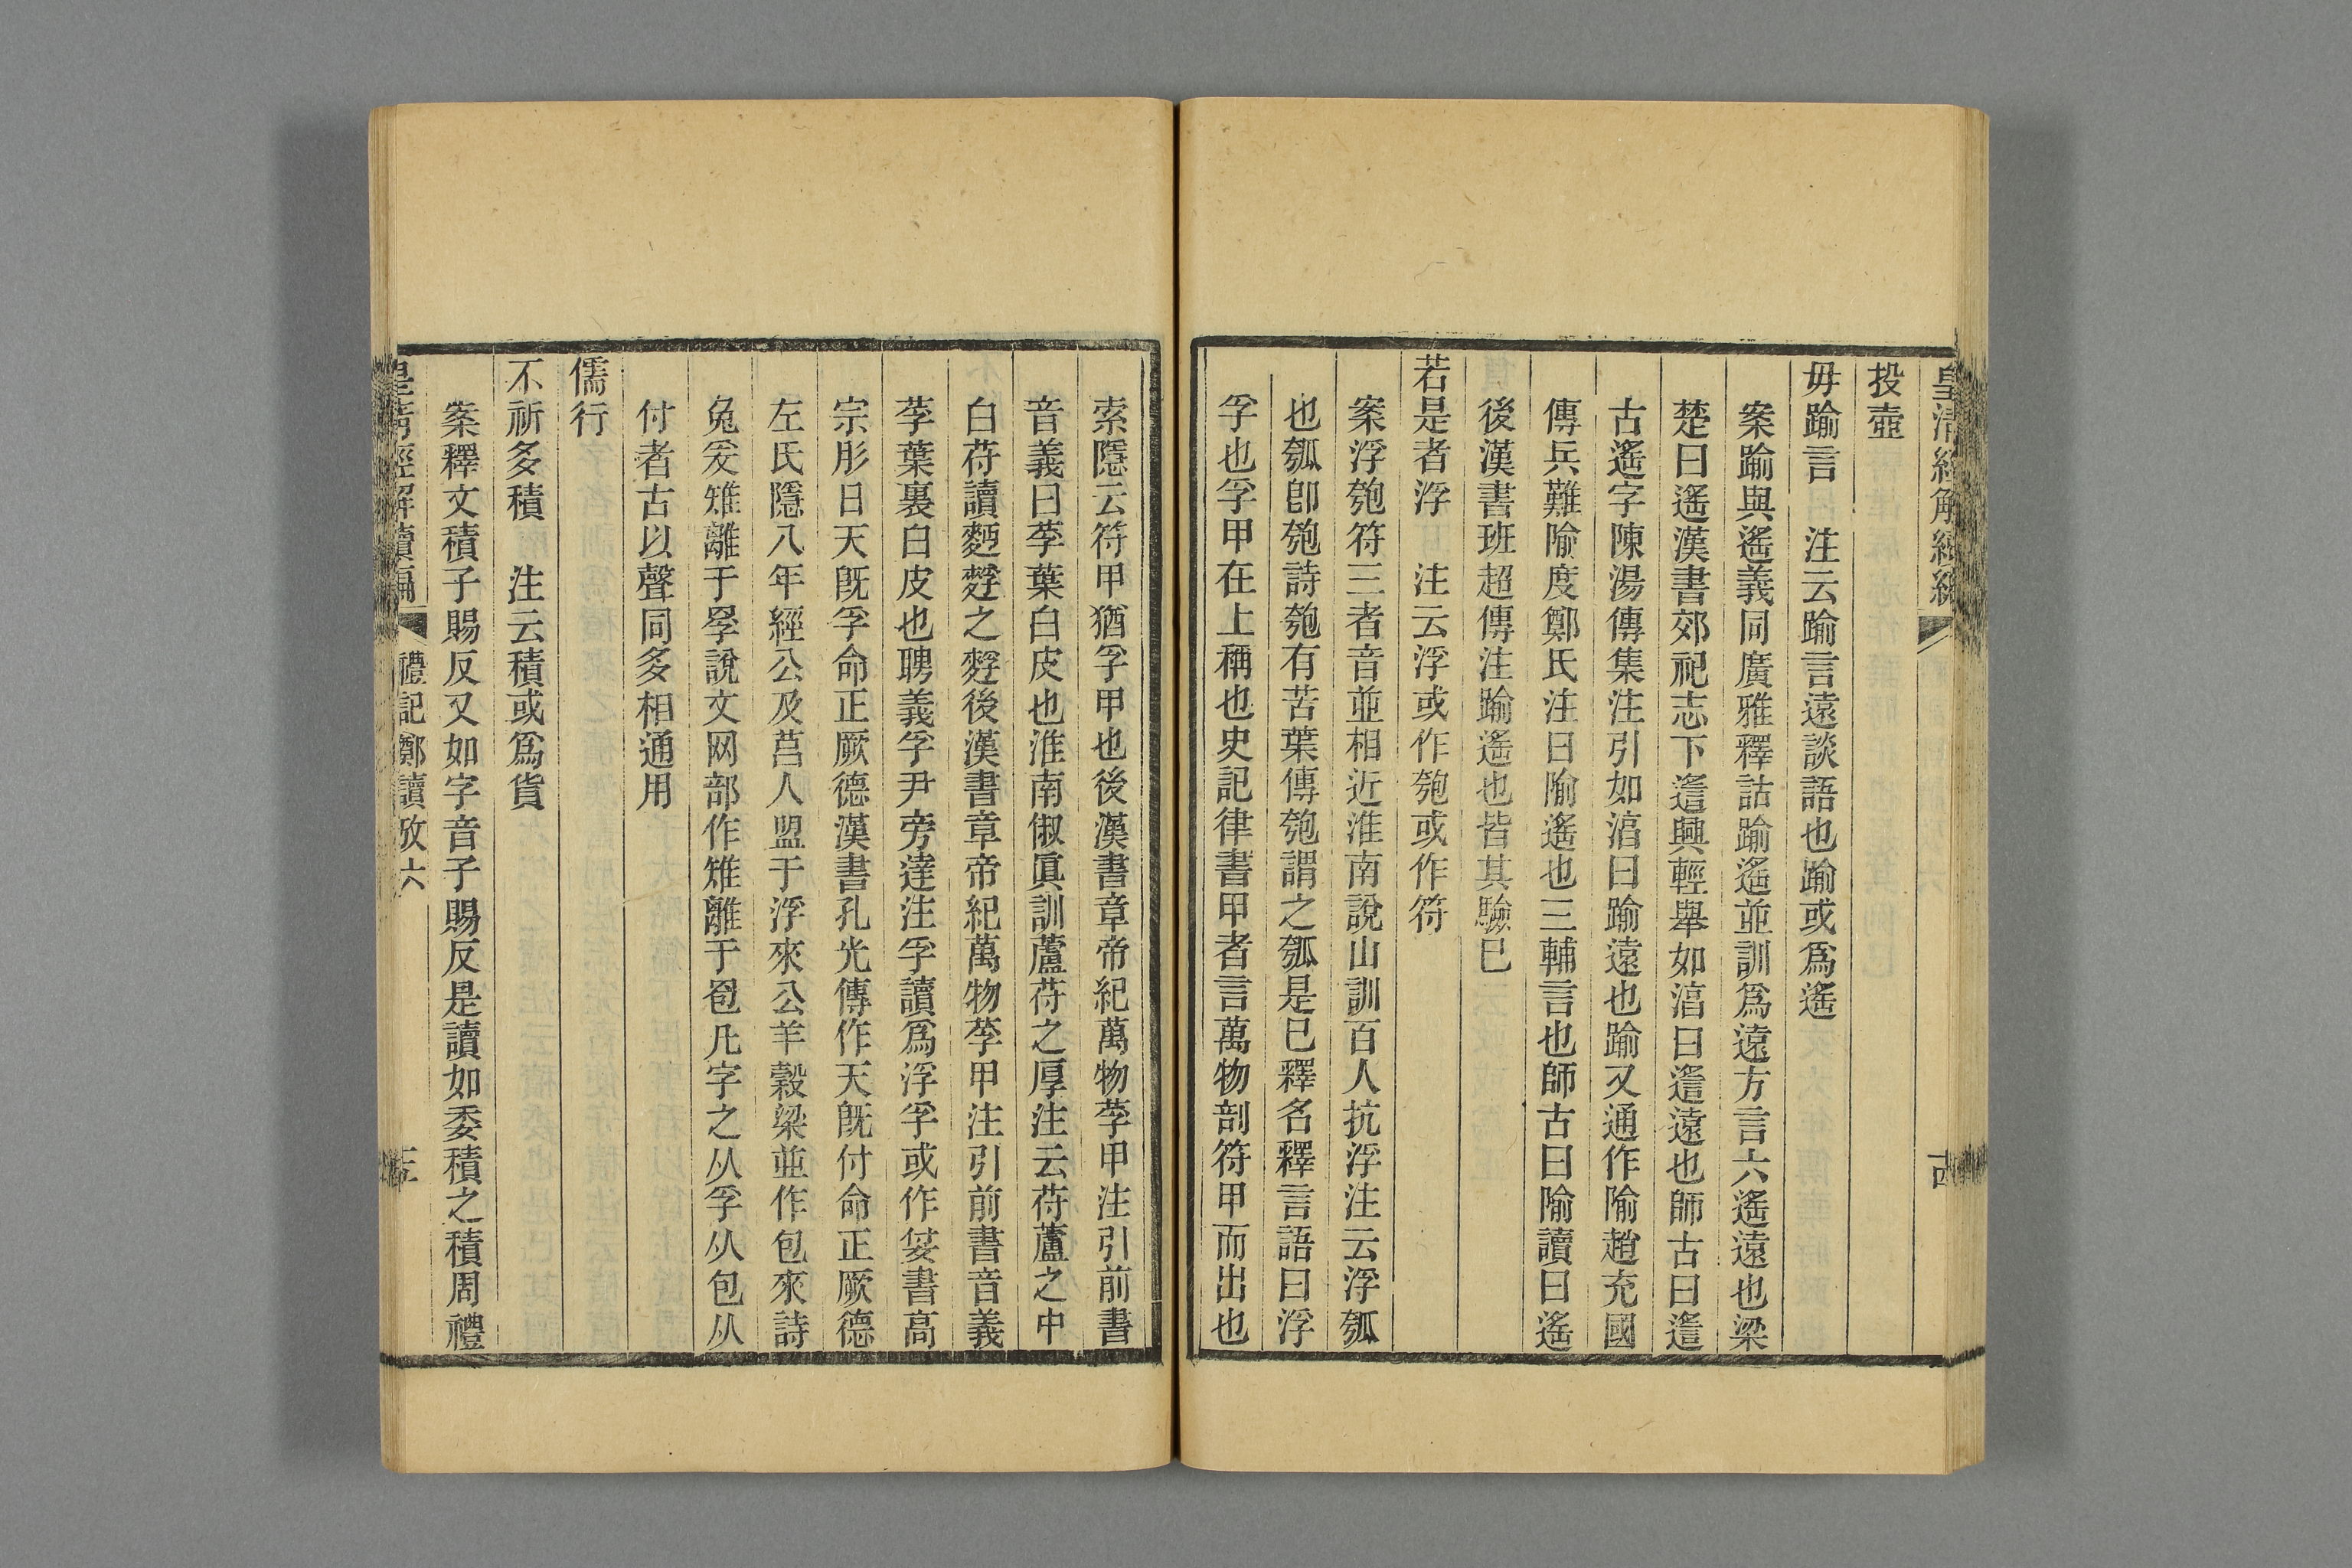 皇清經解續編
投壺
毋踰言　注云踰言遠談語也踰或爲遙
案踰與遙義同廣雅釋詁踰遙並訓爲遠方言六遙遠也梁
楚曰遙漢書郊祀志下遙興輕舉如淳曰遙遠也師古曰遙
古遙字陳湯傳集注引如淳曰踰遠也踰又通作隃趙充國
傳兵難隃度鄭氏注曰隃遙也三輔言也師古曰隃讀曰遙
後漢書班超傳注踰遙也皆其驗巳
若是者浮　注云浮或作匏或作符
案浮匏符三者音並相近淮南說山訓百人抗浮注云浮瓠
也瓠卽匏詩匏有苦葉傳匏謂之瓠是巳釋名釋言語曰浮
孚也孚甲在上稱也史記律書甲者言萬物剖符甲而出也
索隱云符甲猶孚甲也後漢書章帝紀萬物莩甲注引前書
音義曰莩葉白皮也淮南俶眞訓蘆苻之厚注云苻蘆之中
白苻讀麪䴸之䴸後漢書章帝紀萬物莩甲注引前書音義
莩葉裏白皮也聘義孚尹旁達注孚讀爲浮孚或作㛮書高
宗肜日天旣孚命正厥德漢書孔光傳作天旣付命正厥德
左氏隱八年經公及莒人盟于浮來公羊穀梁並作包來詩
兔爰雉離于罦說文网部作雉離于䍖凡字之从孚从包从
付者古以聲同多相通用
儒行
不祈多積　注云積或爲貨
案釋文積子賜反又如字音子賜反是讀如委積之積周禮
皇清經解續編　禮記鄭讀攷六